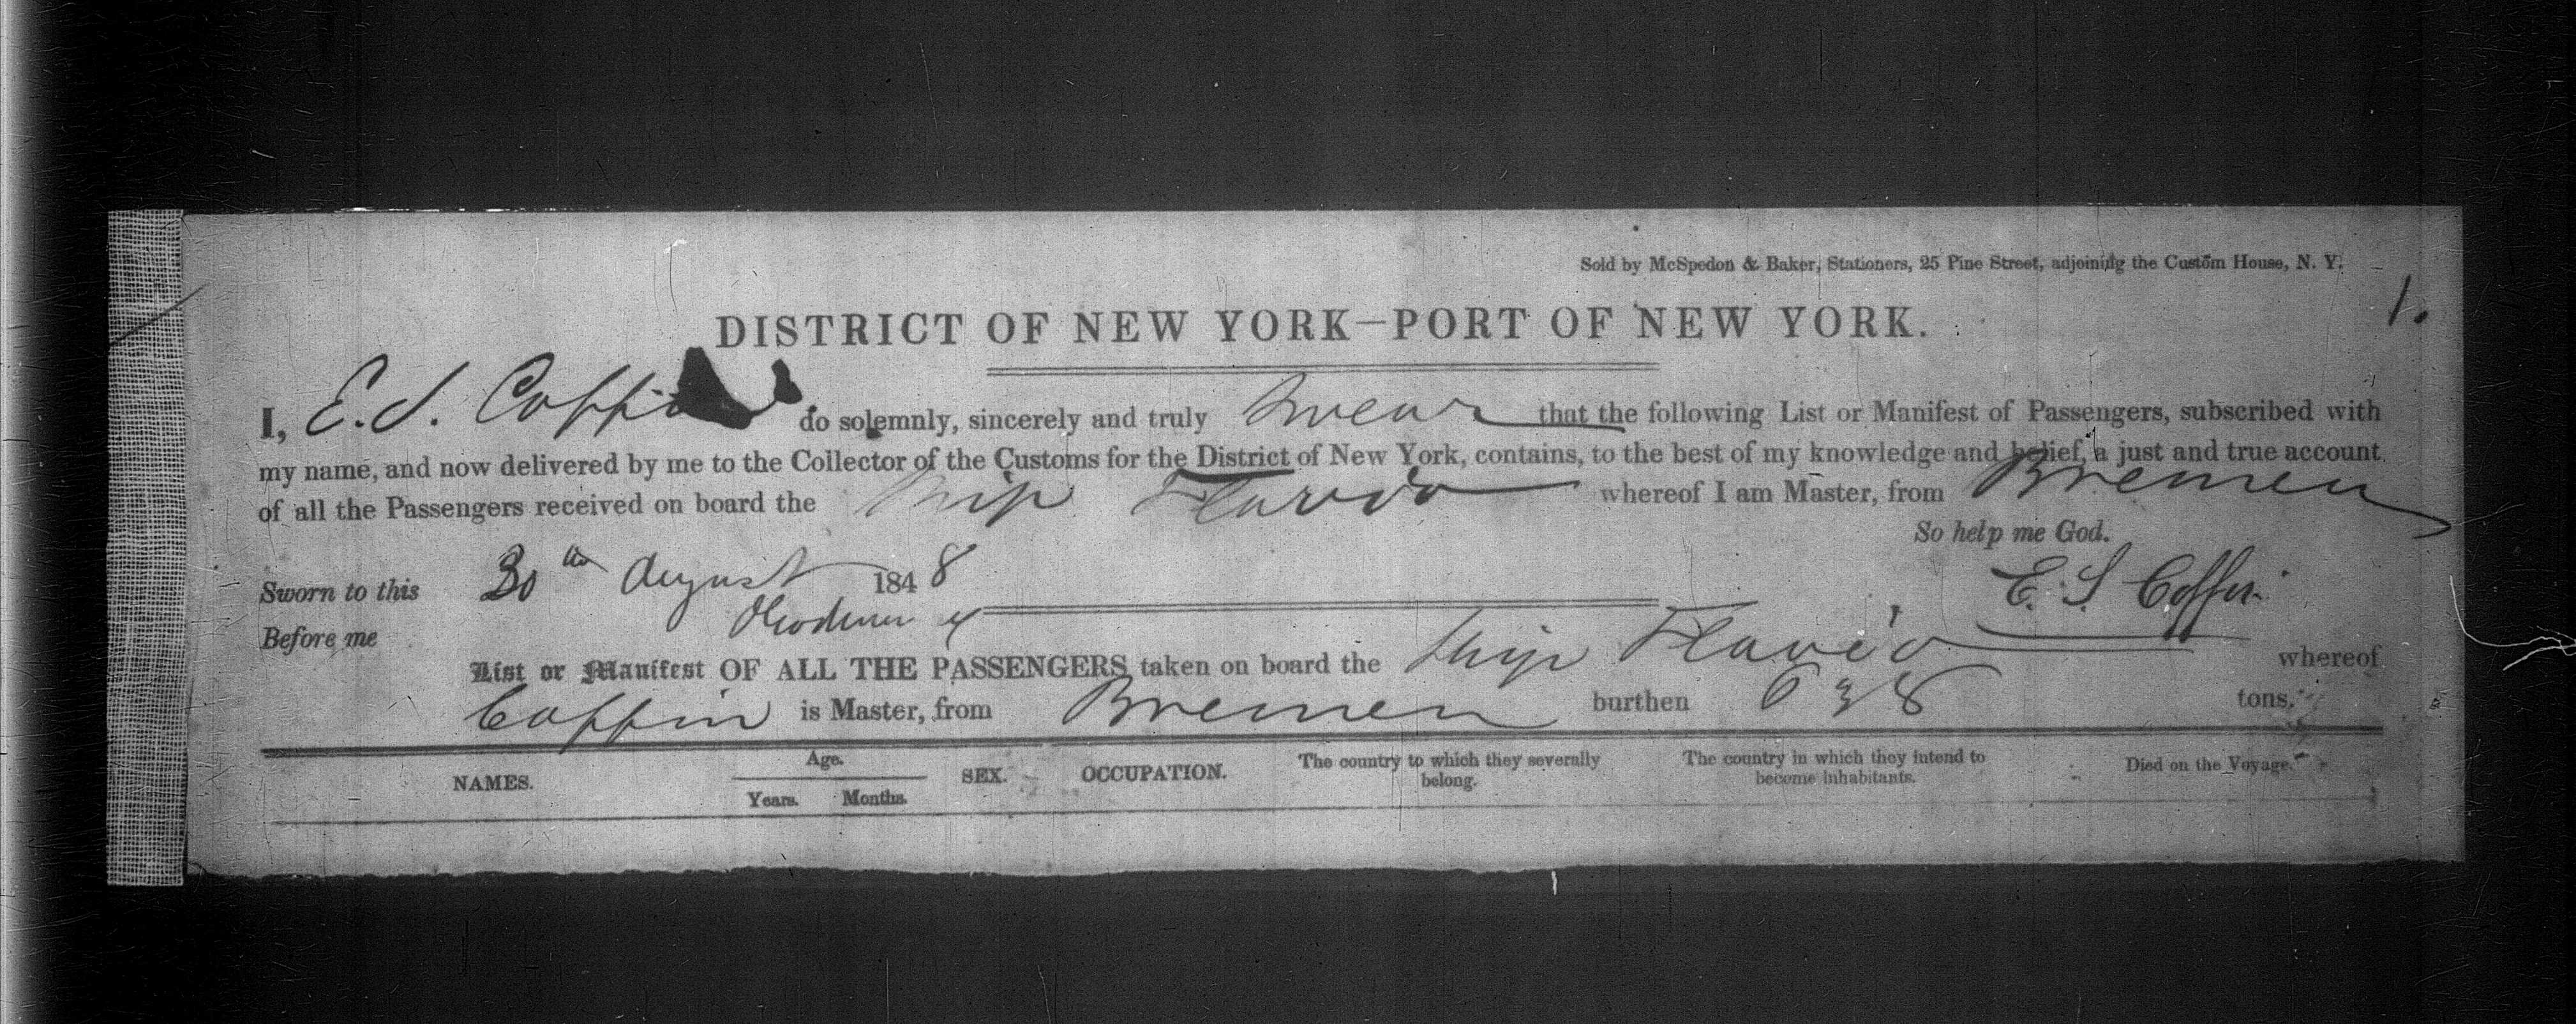 Sold by McSpedon & Baker, Stationers, 25 Pine Street, adjoining the Custom House, N. Y.
1.
DISTRICT OF NEW YORK—PORT OF NEW YORK.
I, E. S. Coffin do solemnly, sincerely and truly swear that the following List or Manifest of Passengers, subscribed with
my name, and now delivered by me to the Collector of the Customs for the District of New York, contains, to the best of my knowledge and belief, a just and true account
of all the Passengers received on board the Ship Flavio whereof I am Master, from Bremen
So help me God.
Sworn to this 30th August 1848
E. S. Coffin
Before me
List or Manifest OF ALL THE PASSENGERS taken on board the Ship Flavio whereof
Coffin is Master, from Bremen burthen 638 tons.
NAMES. Age. Years. Months. SEX. OCCUPATION. The country to which they severally belong. The country in which they intend to become inhabitants. Died on the Voyage.